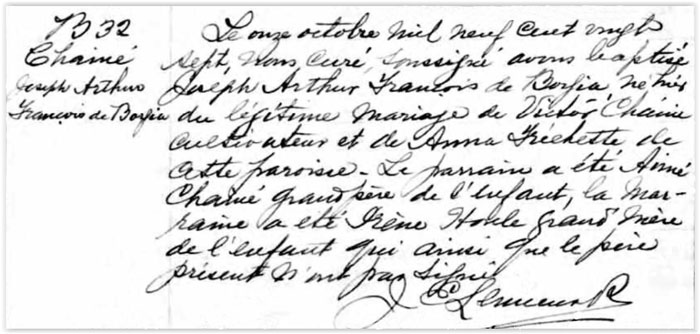 B 32
Chainé
Joseph Arthur
François de Borgia
Le onze octobre mil neuf cent vingt
sept, nous, curé, soussigné avons baptisé
Joseph Arthur François de Borgia, né hier
du légitime mariage de Victor Chainé
cultivateur et de Anna Fréchette de
cette paroisse. - Le parrain a été Aimé
Chainé grand père de l'enfant, la Mar-
raine a été Irène Houle grand mère
de l'enfant qui ainsi que le père
présent n'ont pas signé